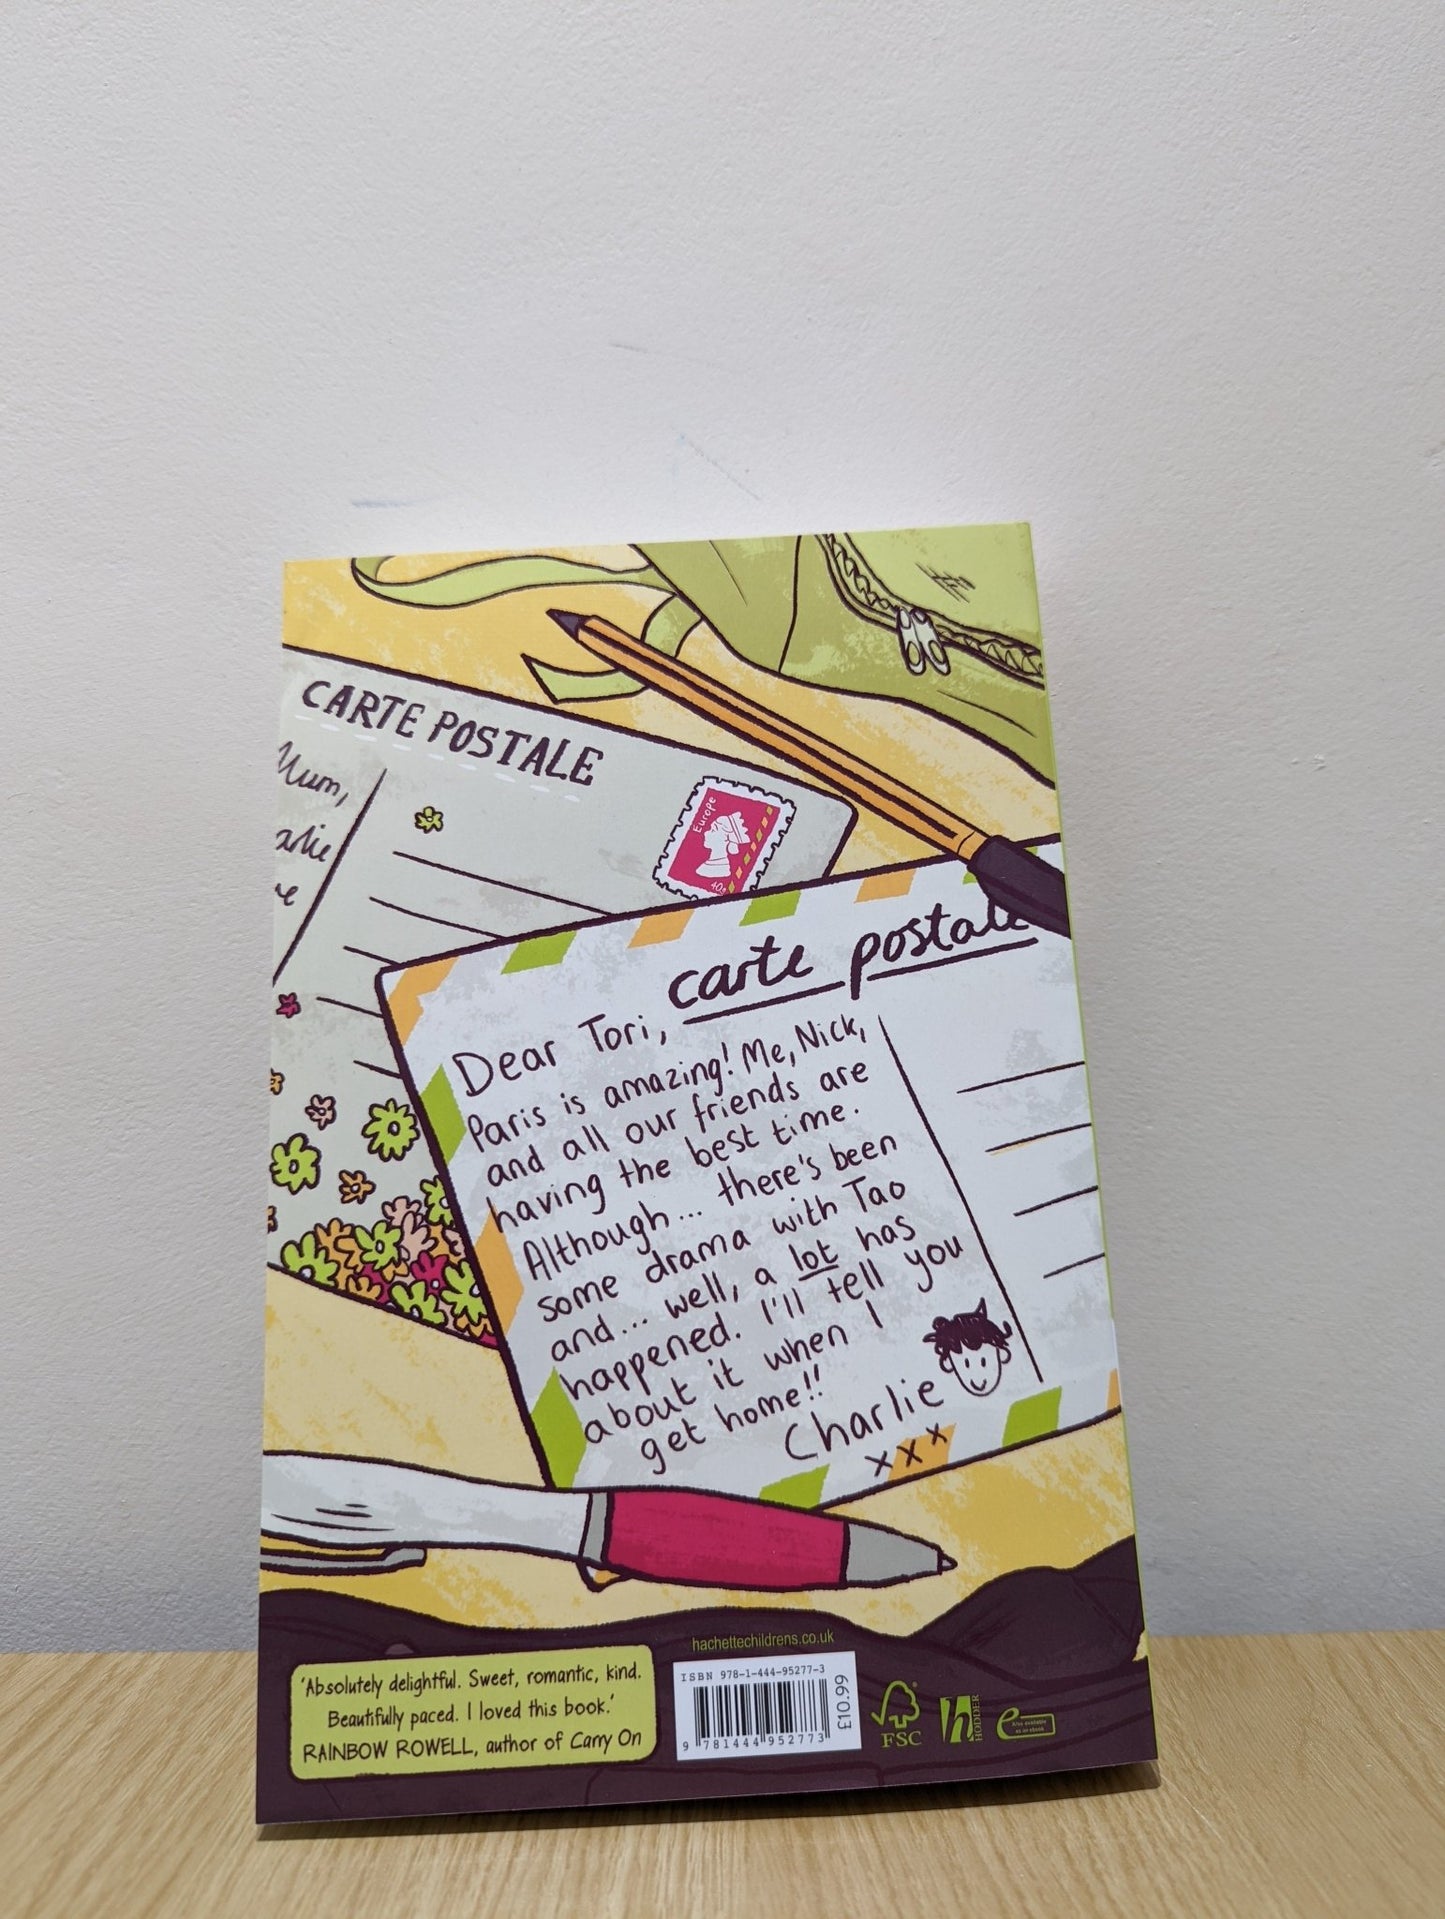 CARTE POSTALE
Mum,
Europe
carte postale
Dear Tori,
Paris is amazing! Me, Nick,
and all our friends are
having the best time.
Although... there's been
some drama with Tao
and... well, a lot has
happened. I'll tell you
about it when I
get home!!
Charlie
xxx
hachettechildrens.co.uk
'Absolutely delightful. Sweet, romantic, kind.
Beautifully paced. I loved this book.'
RAINBOW ROWELL, author of Carry On
ISBN 978-1-444-95277-3
9 781444 952773
£10.99
FSC
h HODDER
e
Also available
as an ebook